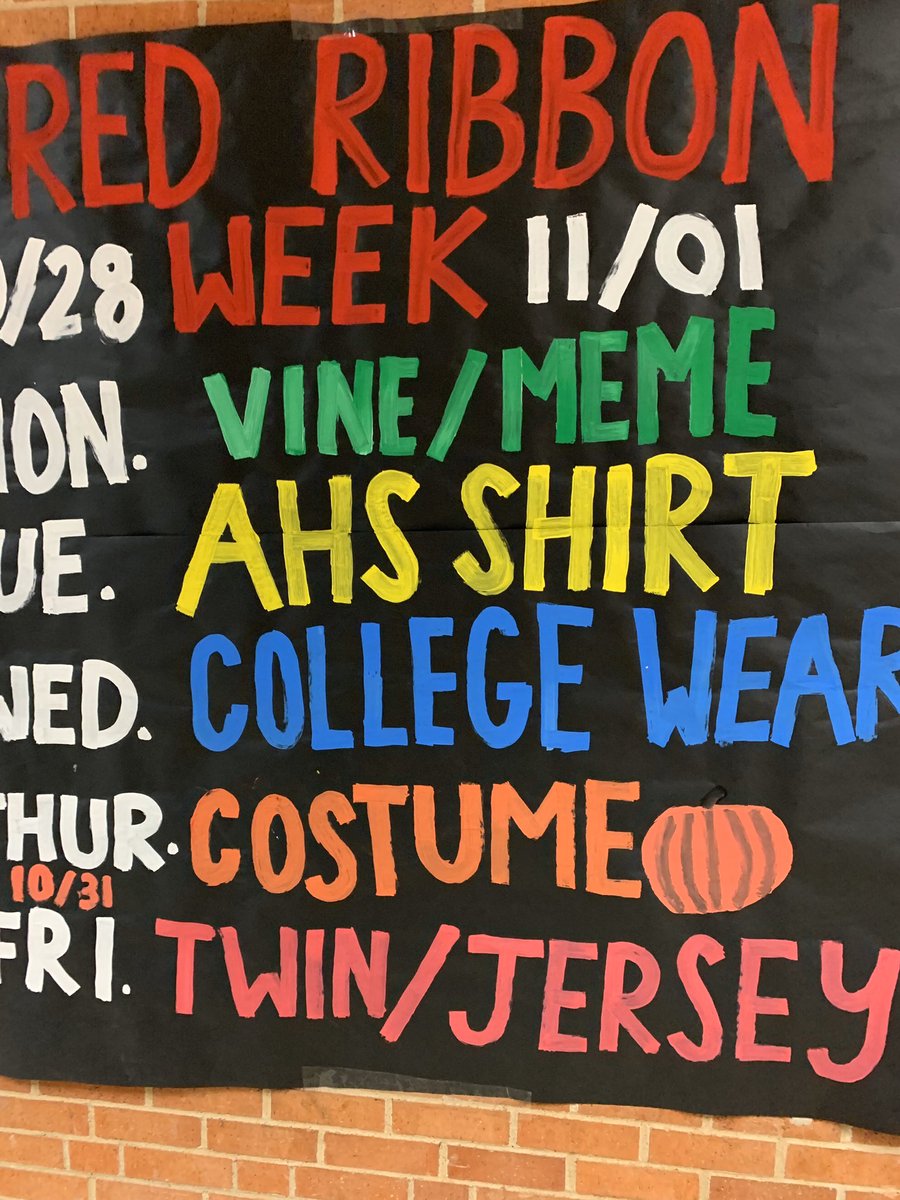 RED RIBBON
0/28 WEEK 11/01
MON. VINE/MEME
UE. AHS SHIRT
WED. COLLEGE WEAR
THUR. COSTUME
10/31
FRI. TWIN/JERSEY